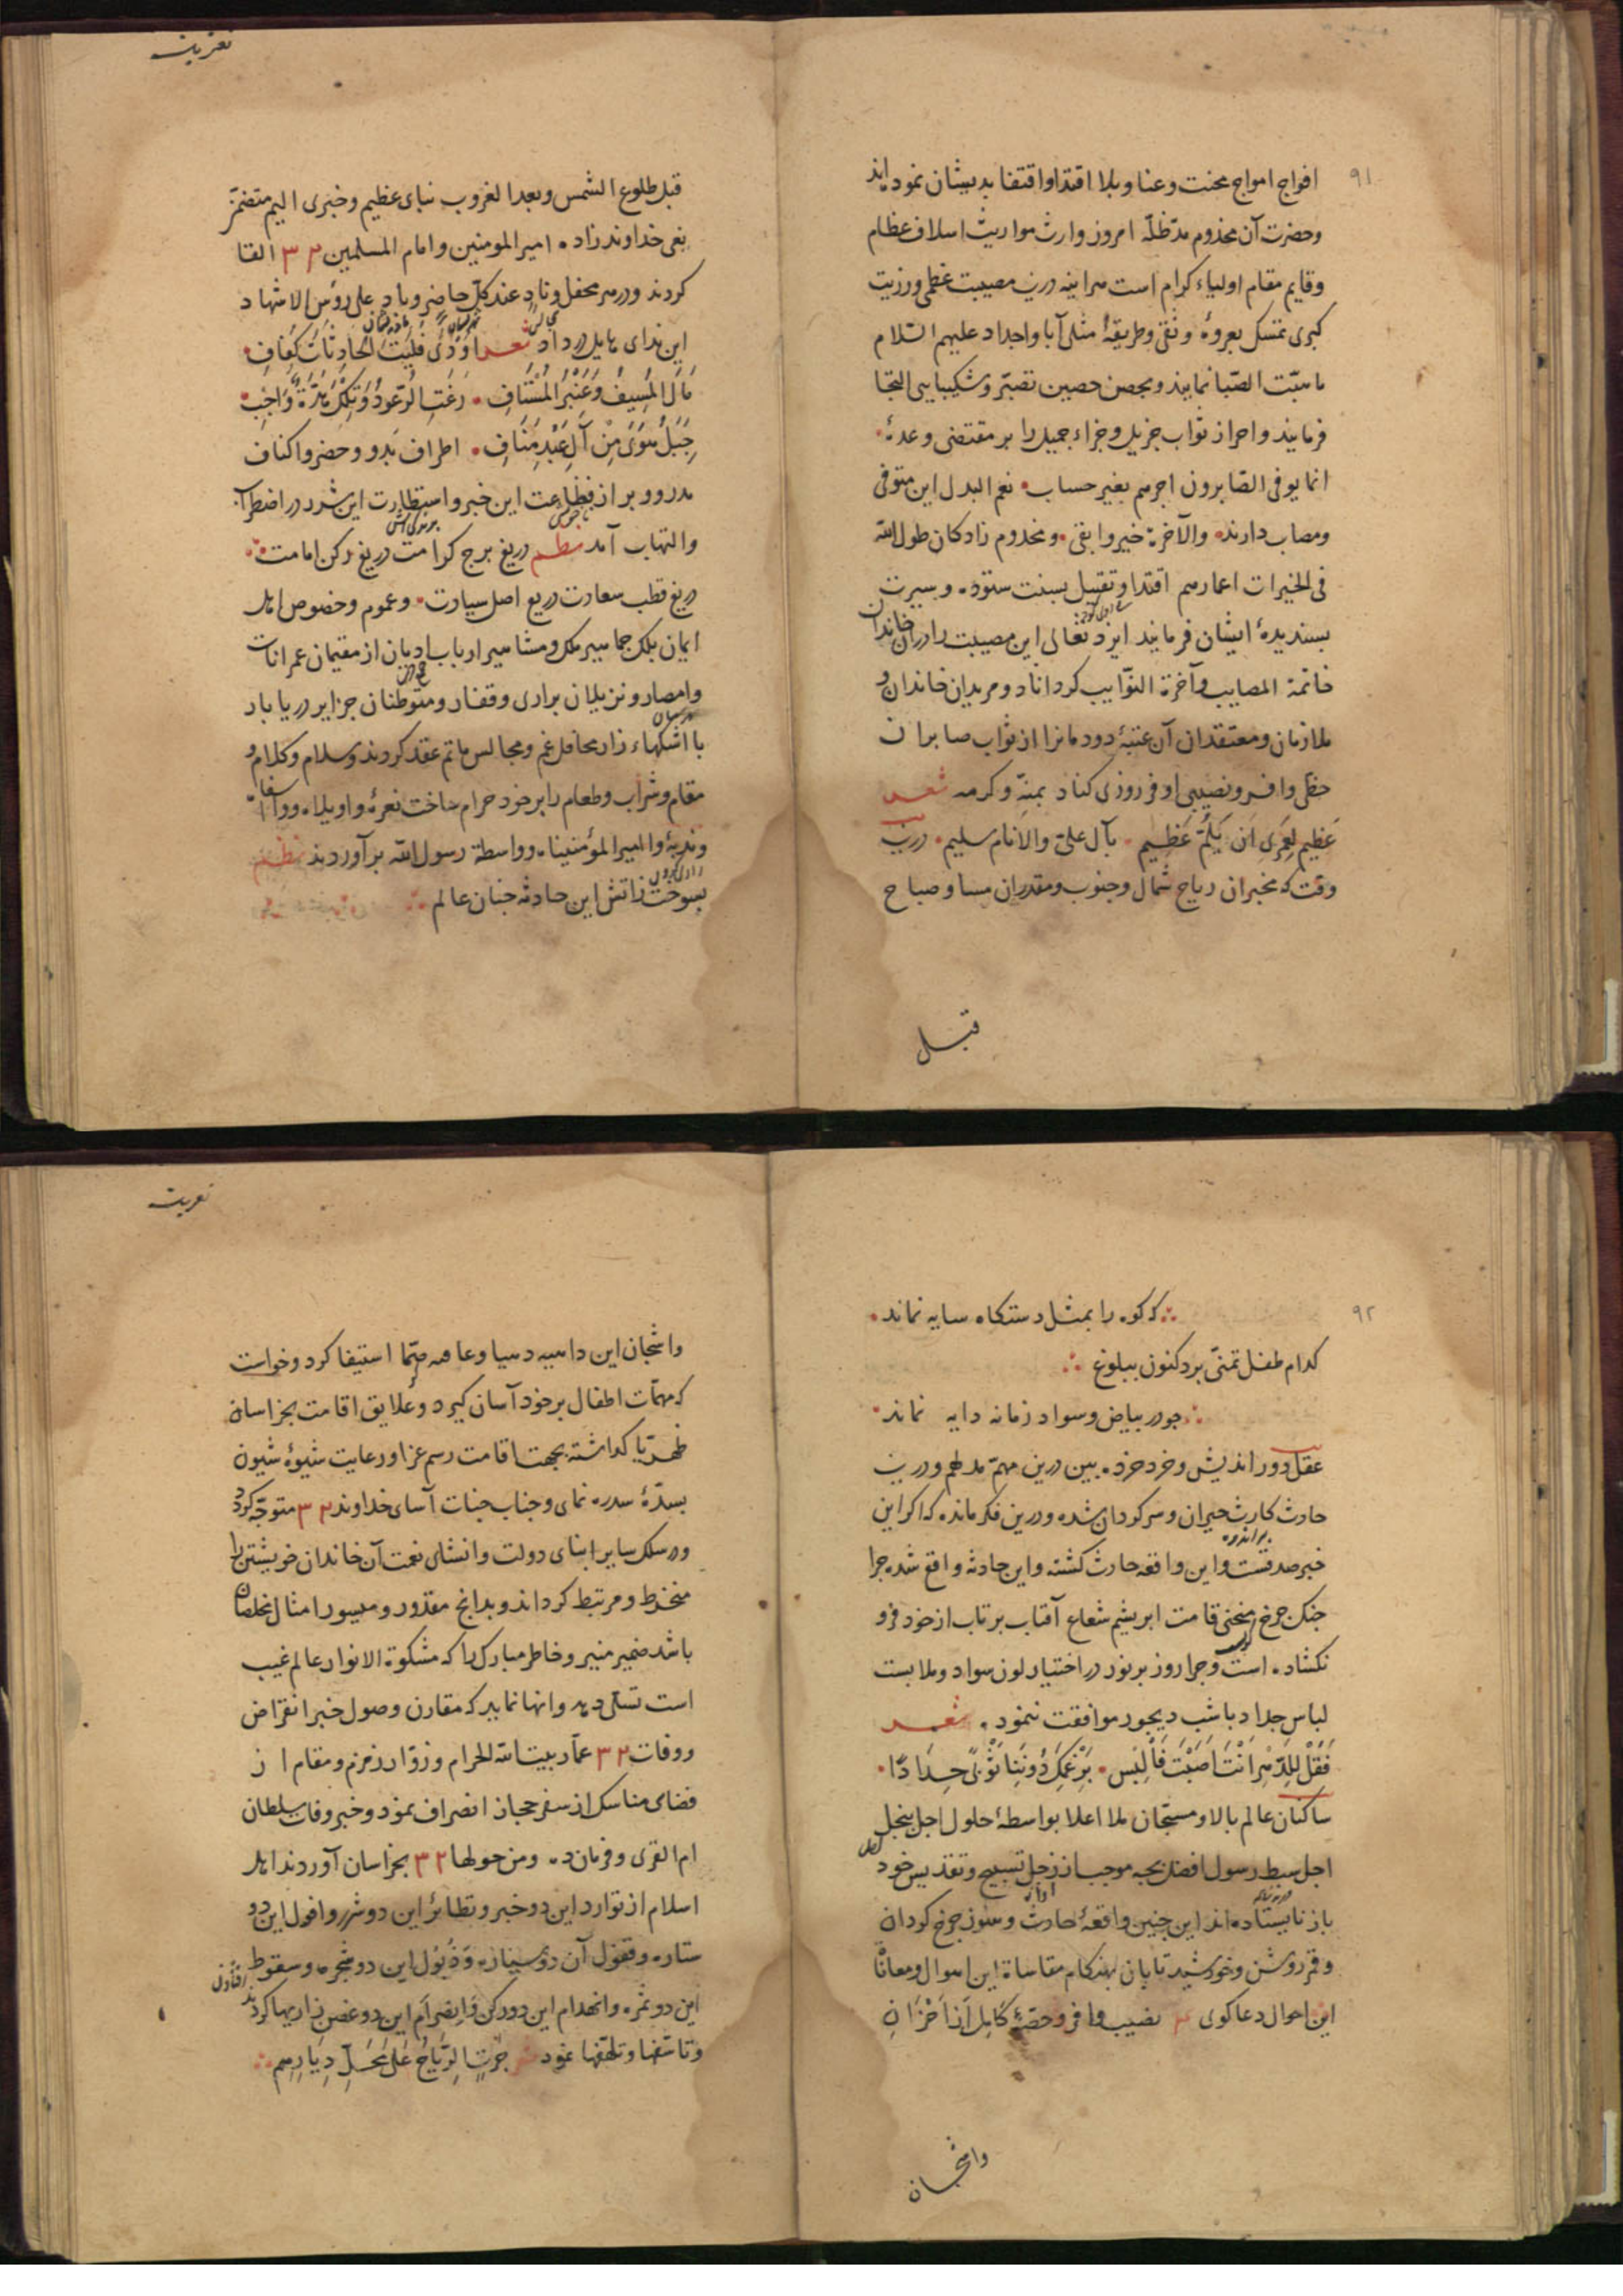 ۹۱
افواج امواج محنت و عنا و بلا اقتدا و اقتفا بدیشان نموده‌اند
وحضرت آن مخدوم مدّ ظلّه امروز وارث مواریث اسلاف عظام
وقایم مقام اولیاء کرام است هراینه درین مصیبت عظمی ورزیت
کبری تمسک بعروهٔ وثقی وطریقهٔ مثلی آبا واجداد علیهم السّلام
نمایند وبحصن حصین تصبّر وشکیبایی التجا
فرمایند واحراز ثواب جزیل وجزاء جمیل را بر مقتضی وعدهٔ
انما یوفی الصّابرون اجرهم بغیر حساب نعم البدل این متوفی
ومصاب دارند والآخرة خیر وابقی ومخدوم زادکان طول الله
فی الخیرات اعمارهم اقتدا وتقیل بسنت ستوده وسیرت
پسندیدهٔ ایشان فرمایند ایزد تعالی این مصیبت را در آن خاندان
خاتمة المصایب وآخرة النوّایب کرداناد ومریدان خاندان و
ملازمان ومعتقدان آن عتبهٔ دودمانرا از ثواب صابران
حظی وافر ونصیبی اوفر روزی کناد بمنّه وکرمه شعر
عَظیم لعمری اَن یُلِمّ عَظیم بآل علیّ والانام سلیم درین
وقت که مخبران ریاح شمال وجنوب ومقدران مسا وصباح
قبل
تعزیت
قبل طلوع الشمس وبعد الغروب نبای عظیم وخبری الیم متضمّن
نعی خداوندزاده امیر المومنین وامام المسلمین ۳۲ القا
کردند ودر هر محفل وناد عند کلّ حاضر وباد علی رؤس الاشهاد
این ندای هایل در داد شعر اَوْدَی فَلَیْتَ الحَادِثَاتِ کَفَافِ
مَالُ المُسِیفِ وَعَنْبَرُ المُسْتَافِ رَغَتِ الرُّعُودُ وَتِلْکَ هَدَّةُ وَاجِبٍ
جَبَلٌ هَوَی مِنْ آلِ عَبْدِ مَنَافِ اطراف بَدو وحضر واکناف
مدر ووبر از فظاعت این خبر واستطارت این شرر در اضطراب
والتهاب آمد نظم دریغ برج کرامت دریغ رکن امامت
دریغ قطب سعادت دریغ اصل سیادت وعموم وخصوص اهل
ایمان بلک جماهیر ملک ومشاهیر ارباب ادیان از مقیمان عمرانات
وامصار ونزیلان براری وقفار ومتوطنان جزایر دریابار
با اشکهاء زار محافل غم ومجالس ماتم عقد کردند وسلام وکلام و
مقام وشراب وطعام را بر خود حرام ساخت نعرهٔ واویلاه ووا اسفا
وندبهٔ وا امیر المؤمنیناه وواسطة رسول الله برآوردند نظم
بسوخت زاتش این حادثه جنان عالم
۹۲
که کوه را بمثل دستکاه سایه نماند
کدام طفل تمنّی برد کنون ببلوغ
جو در بیاض وسواد زمانه دایه نماند
عقل دور اندیش وخرد خرده بین درین مهمّ مدلهم ودرین
حادث کارث حیران وسرکردان شده ودرین فکر مانده که اکر این
خبر صدقست واین واقعه حادث کشته واین حادثه واقع شده جرا
جنک جرخ منحنی قامت ابریشم شعاع آفتاب برتاب از خود فرو
نکشاده است وجرا روز برنور در اختیار لون سواد وملابست
لباس حداد باشب دیجور موافقت ننمود شعر
فَقُلْ لِلدَّهْرِ اَنْتَ اَصَبْتَ فَاَلْبِسْ بِرَغْمِکَ دُونَنَا ثَوْبَیْ حِدَادًا
ساکنان عالم بالا ومسبّحان ملا اعلا بواسطهٔ حلول اجل بنجل
اجل سبط رسول افضل بجه موجب از زجل تسبیح وتقدیس خود
باز نایستاده‌اند این جنین واقعهٔ حادث وهنوز جرخ کردان
وقمر روشن وخورشید تابان بهنکام مقاساة این اهوال ومعاناة
این احوال دعاکوی نصیب وافر وحصّهٔ کَامِل از اَحْزَانِ
واشجان
تعزیت
واشجان این داهیه دهیا وعاهه صمّا استیفا کرد وخواست
که مهمّات اطفال بر خود آسان کیرد وعلایق اقامت بخراسان
ظهریّا کذاشته بجهت اقامت رسم عزا ورعایت شیوهٔ شیون
بسدّهٔ سدره نمای وجناب جنات آسای خداوند ۳۲ متوجّه کردد
ودر سلک سایر ابنای دولت وانشای نعمت آن خاندان خویشتن را
منخرط ومرتبط کرداند وبدانج مقدور ومیسور امثال مخلصان
باشد ضمیر منیر وخاطر مبارک را که مشکوة الانوار عالم غیب
است تسلّی دهد وانها نماید که مقارن وصول خبر انقراض
ووفات ۳۲ عمّار بیت الله الحرام وزوّار زمزم ومقام از
قضای مناسک از سفر حجاز انصراف نمود وخبر وفات سلطان
ام القری وفرمان‌ده ومن حولها ۳۲ بخراسان آوردند اهل
اسلام از توارد این دو خبر وتطایر این دو شرر وافول این دو
ستاره وقفول آن دو سیاره وَذُبُول این دو شجره وسقوط
این دو ثمره وانهدام این دو رکن وَانصرام این دو غصن زاریها کردند
وتاسّفها وتلهّفها نمود شعر جَرَتِ الرِّیَاحُ عَلَی مَحَلِّ دِیَارِهِم